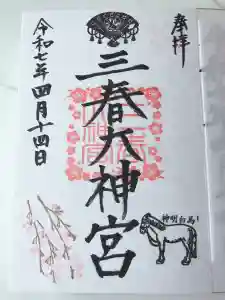 奉拝
三春大神宮
令和七年四月十四日
神明白馬!